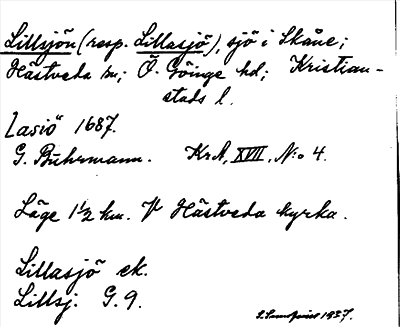 Lillsjön (resp. Lillasjö), sjö i Skåne;
Hästveda sn; Ö. Göinge hd; Kristian-
stads l.
Lasiö 1687.
G. Buhrmann. KrA, XVII, N:o 4.
Läge 1 1/2 km. V Hästveda kyrka.
Lillasjö ek.
Lillsj. G. 9.
1937.